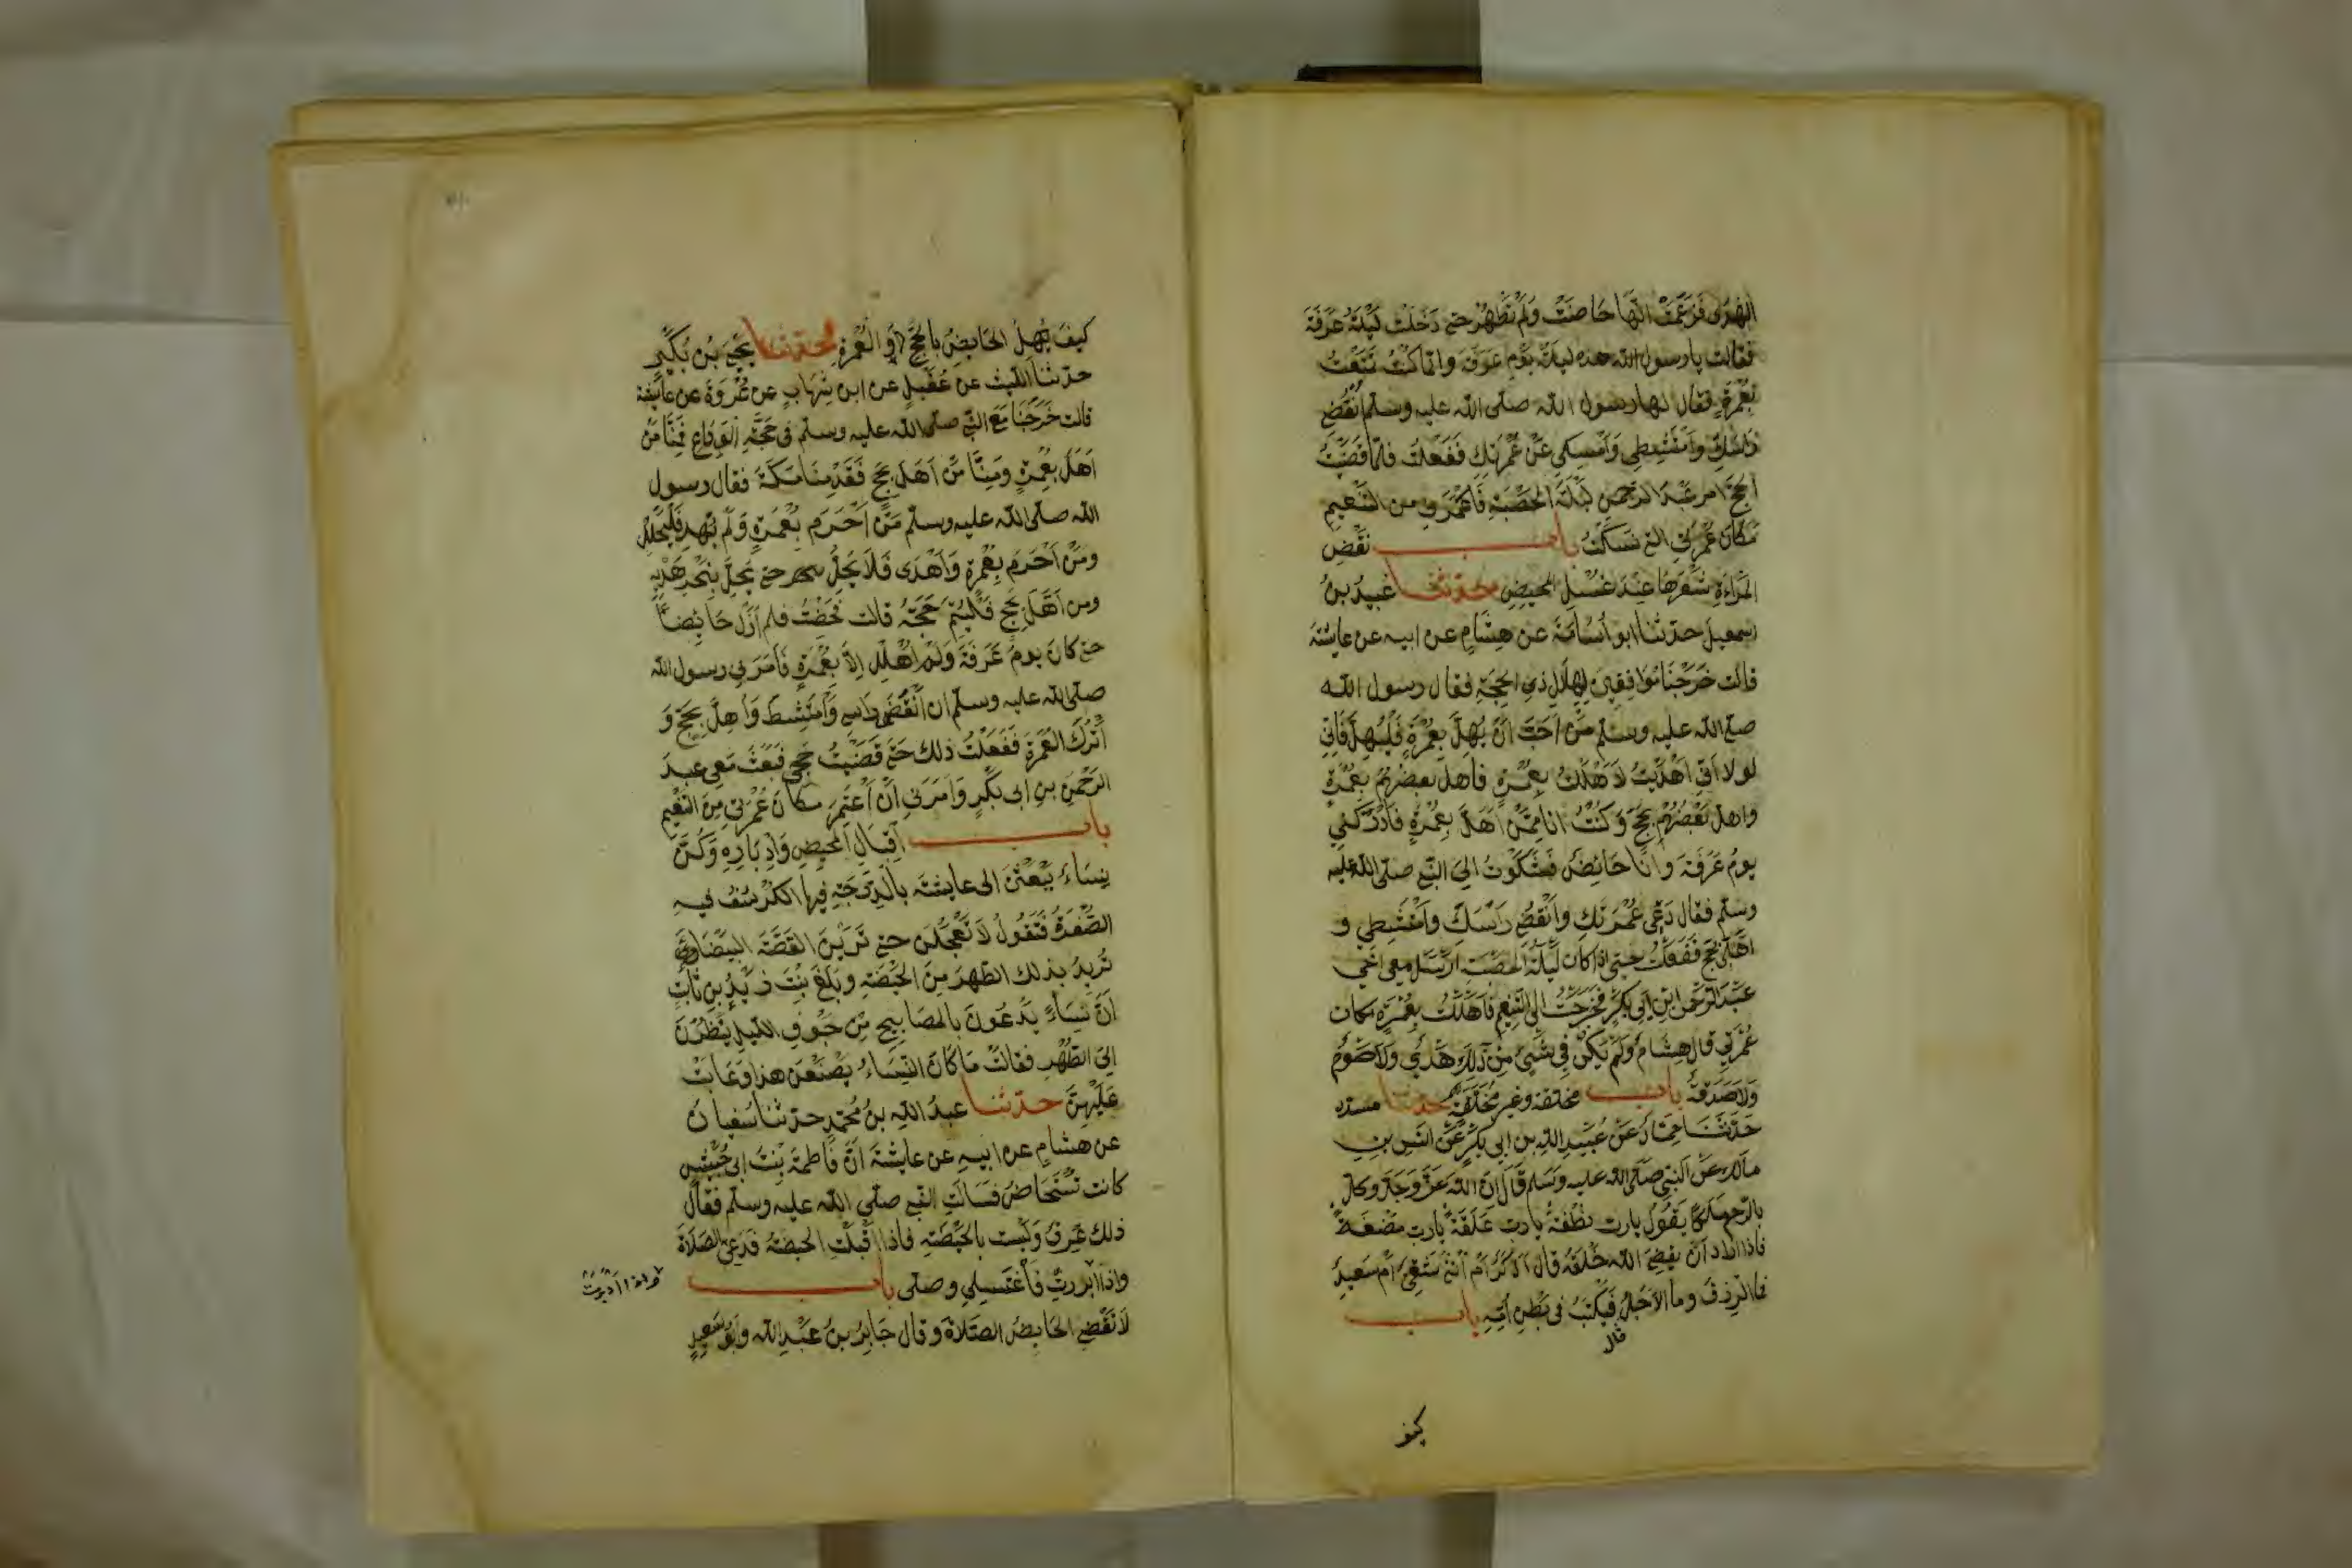 الهدى فزعمت انها حاضت ولم تطهر حتى دخلت ليلة عرفة
فقالت يا رسول الله هذه ليلة يوم عرفة وانما كنت تمتعت
بعمرة فقال لها رسول الله صلى الله عليه وسلم انقضي
راسك وامتشطي وامسكي عن عمرتك ففعلت فلما قضيت
الحج امر عبد الرحمن ليلة الحصبة فاعمرني من التنعيم
مكان عمرتي التي نسكت باب نقض
المراة شعرها عند غسل المحيض حدثنا عبيد بن
اسمعيل حدثنا ابو اسامة عن هشام عن ابيه عن عايشة
قالت خرجنا موافقين لهلال ذي الحجة فقال رسول الله
صلى الله عليه وسلم من احب ان يهل بعمرة فليهل فاني
لولا اني اهديت لاهللت بعمرة فاهل بعضهم بعمرة
واهل بعضهم بحج وكنت انا ممن اهل بعمرة فادركني
يوم عرفة وانا حائض فشكوت الى النبي صلى الله عليه
وسلم فقال دعي عمرتك وانقضي راسك وامتشطي و
اهلي بحج ففعلت حتى اذا كان ليلة الحصبة ارسل معي اخي
عبد الرحمن ابن ابي بكر فخرجت الى التنعيم فاهللت بعمرة مكان
عمرتي قال هشام ولم يكن في شيئ من ذلك هدي ولا صوم
ولا صدقة باب مخلقة وغير مخلقة حدثنا مسدد
حدثنا حماد عن عبيد الله بن ابي بكر عن انس بن
مالك عن النبي صلى الله عليه وسلم قال ان الله عز وجل وكل
بالرحم ملكا يقول يا رب نطفة يا رب علقة يا رب مضغة
فاذا اراد ان يقضي الله خلقه قال اذكر ام انثى شقي ام سعيد
فما الرزق وما الاجل فيكتب في بطن امه باب
قال
كيف
كيف تهل الحايض بالحج او العمرة حدثنا يحيى بن بكير
حدثنا الليث عن عقيل عن ابن شهاب عن عروة عن عايشة
قالت خرجنا مع النبي صلى الله عليه وسلم في حجة الوداع فمنا من
اهل بعمرة ومنا من اهل بحج فقدمنا مكة فقال رسول
الله صلى الله عليه وسلم من احرم بعمرة ولم يهد فليحلل
ومن احرم بعمرة واهدى فلا يحل حتى يحل بنحر هديه
ومن اهل بحج فليتم حجه قالت فحضت فلم ازل حائضا
حتى كان يوم عرفة ولم اهلل الا بعمرة فامرني رسول الله
صلى الله عليه وسلم ان انقض راسي وامتشط واهل بحج و
اترك العمرة ففعلت ذلك حتى قضيت حجي فبعث معي عبد
الرحمن بن ابي بكر وامرني ان اعتمر مكان عمرتي من التنعيم
باب اقبال المحيض وادباره وكن
نساء يبعثن الى عايشة بالدرجة فيها الكرسف فيه
الصفرة فتقول لا تعجلن حتى ترين القصة البيضاء
تريد بذلك الطهر من الحيضة وبلغ بنت زيد بن ثابت
ان نساء يدعون بالمصابيح من جوف الليل ينظرن
الى الطهر فقالت ما كان النساء يصنعن هذا وعابت
عليهن حدثنا عبد الله بن محمد حدثنا سفيان
عن هشام عن ابيه عن عايشة ان فاطمة بنت ابي حبيش
كانت تستحاض فسالت النبي صلى الله عليه وسلم فقال
ذلك عرق وليست بالحيضة فاذا اقبلت الحيضة فدعي الصلاة
واذا ابررت فاغتسلي وصلي باب
واذا ادبرت
لا تقضي الحايض الصلاة وقال جابر بن عبد الله وابو سعيد